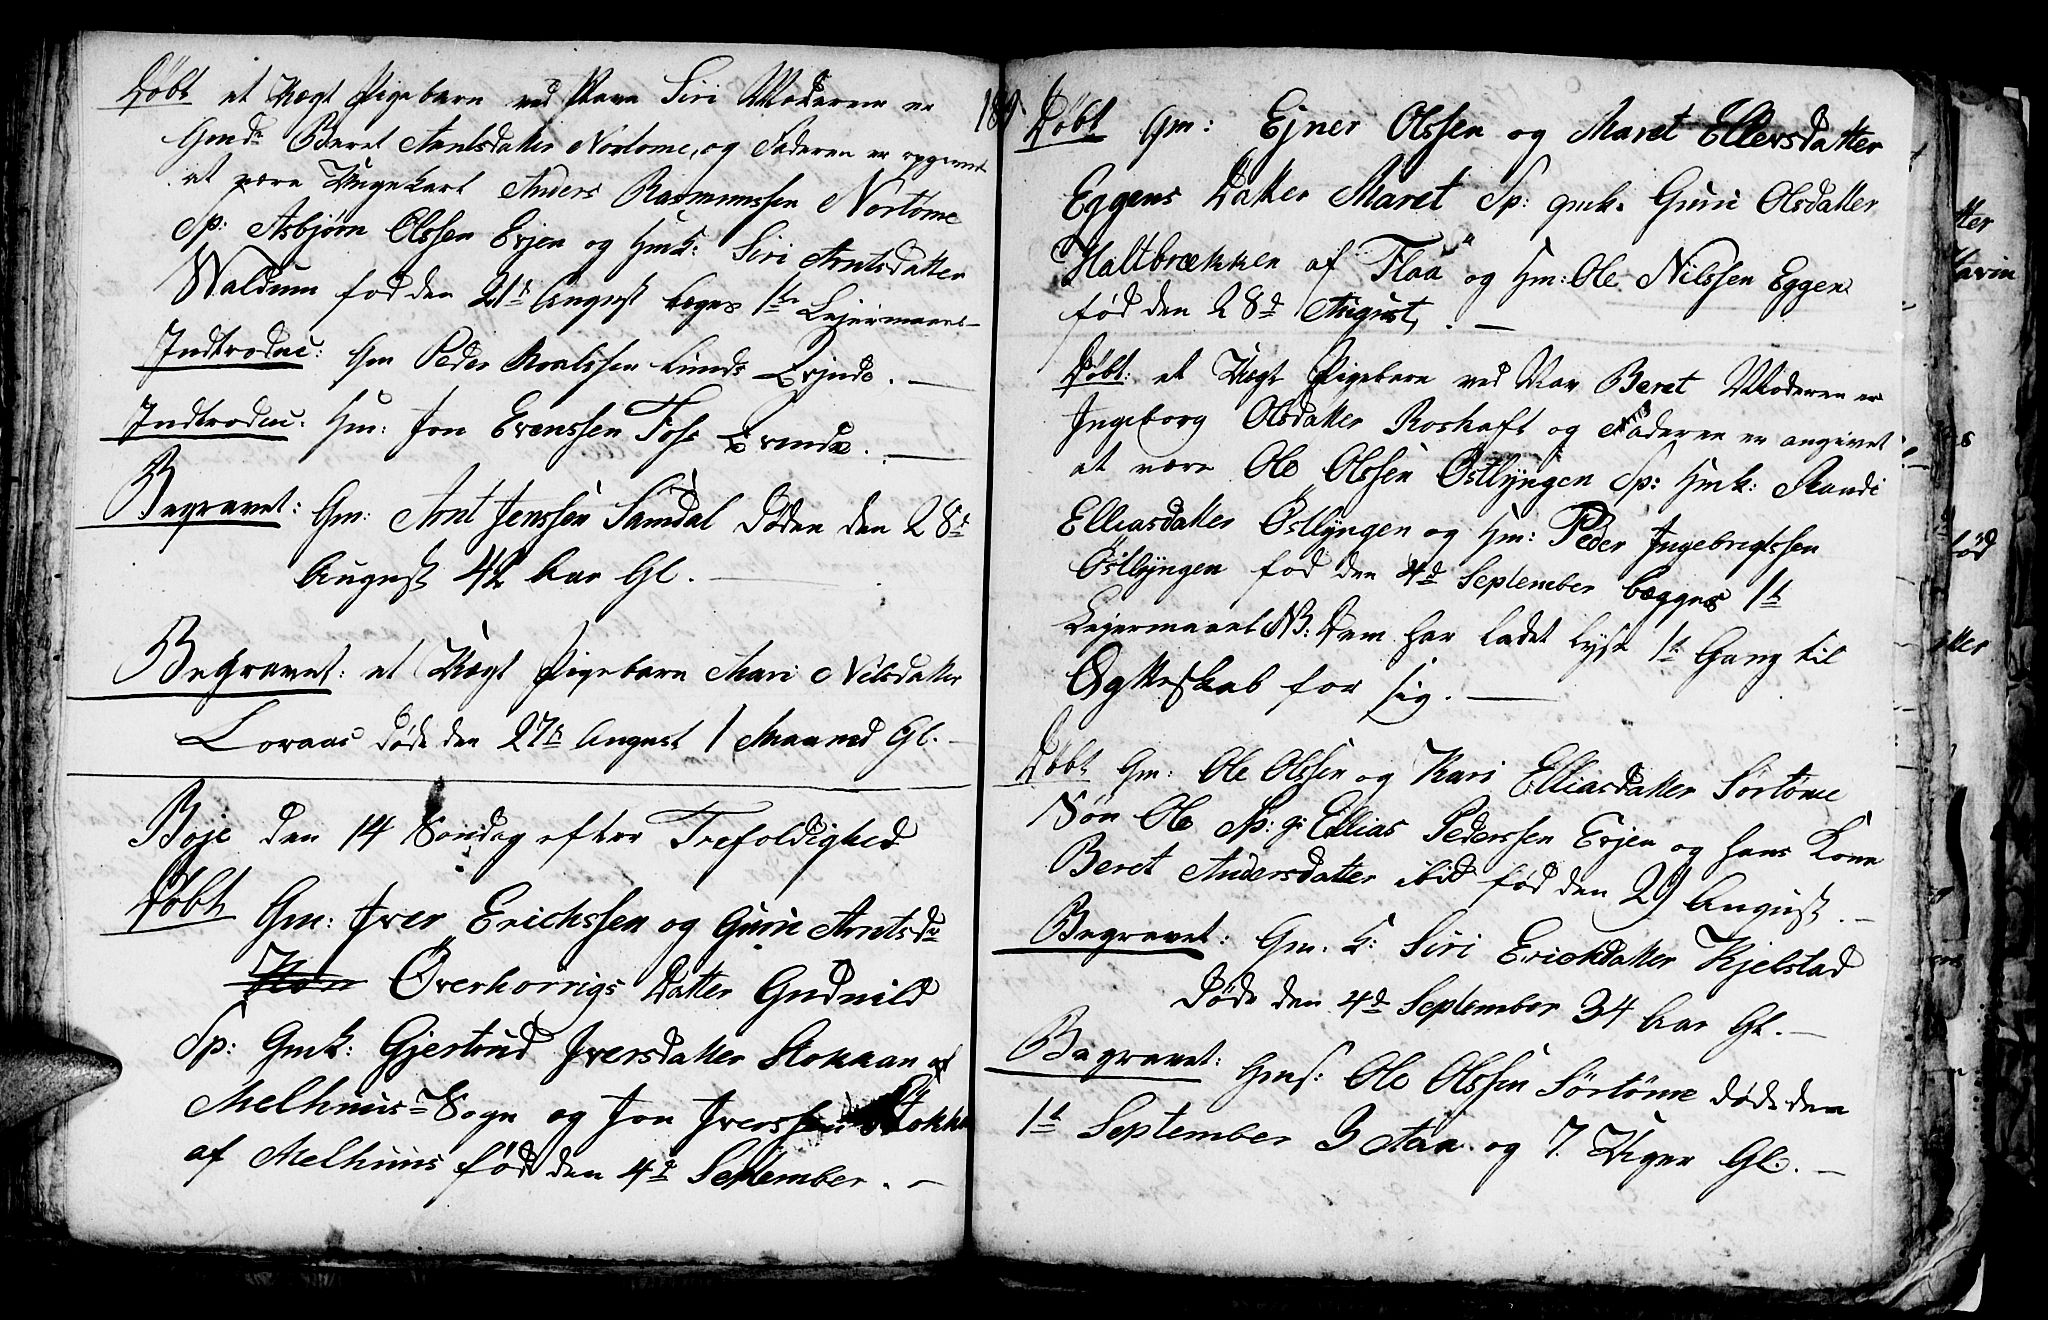 Døbt et Uægt Pigebarn ved Navn Siri Moderen er
Gmdr Beret Arntsdatter Nortome, og Faderen er opgivet
at være Ungekarl Anders Rasmussen Nortome
Sp: Asbjørn Olssen Evjen og Hmk: Siri Arntsdatter
Waldum fød den 21de August begges 1te Lejermaal
Indtroduc: Gm Peder Roalssen Lunds Qvinde.
Indtroduc: Hm: Jon Evenssen Foss Qvinde.
Begravet: Gm: Arnt Jenssen Samdal Døde den 28d
August 42 Aar Gl.
Begravet: et Uægt Pigebarn Mari Nilsdatter
Loraas døde den 27d August 1 Maaned Gl.
Boje den 14 Søndag efter Trefoldighed
Døbt Gm: Iver Erichssen og Guru Arntsdr
Øverhorrigs Datter Gudnild
Sp: Gmk: Gjertrud Iversdatter Stokkan af
Melhuus Sogn og Jon Iverssen Stokka
af Melhuus fød den 4d September.
189
Døbt Gm: Ejner Olssen og Maret Ellersdatter
Eggens Datter Maret Sp: gmk. Guri Olsdatter
Haltbrækken af Flaa og Hm: Ole Nilssen Eggen
fød den 28d August.
Døbt: et Uægt Pigebarn ved Nav Beret Moderen er
Ingeborg Olsdatter Roskaft og Faderen er angivet
at være Ole Olssen Østlyngen Sp: Hmk: Randi
Elliasdatter Østlyngen og Hm: Peder Ingebrigtssen
Østlyngen fød den 4d September begges 1t
Lejermaal NB: Dem har ladet lyse 1t Gang til
Ægteskab for sig.
Døbt Gm: Ole Olssen og Kari Elliasdatter Sørtome
Søn Ole Sp: g: Ellias Pederssen Evjen og hans Kone
Beret Andersdatter ibid fød den 29 August.
Begravet: Gm. K: Siri Erichdatter Kjelstad
Døde den 4d September 34 Aar Gl.
Begravet: Gms: Ole Olssen Sørtome døde den
1t September 3 Aar og 7. Uger Gl.